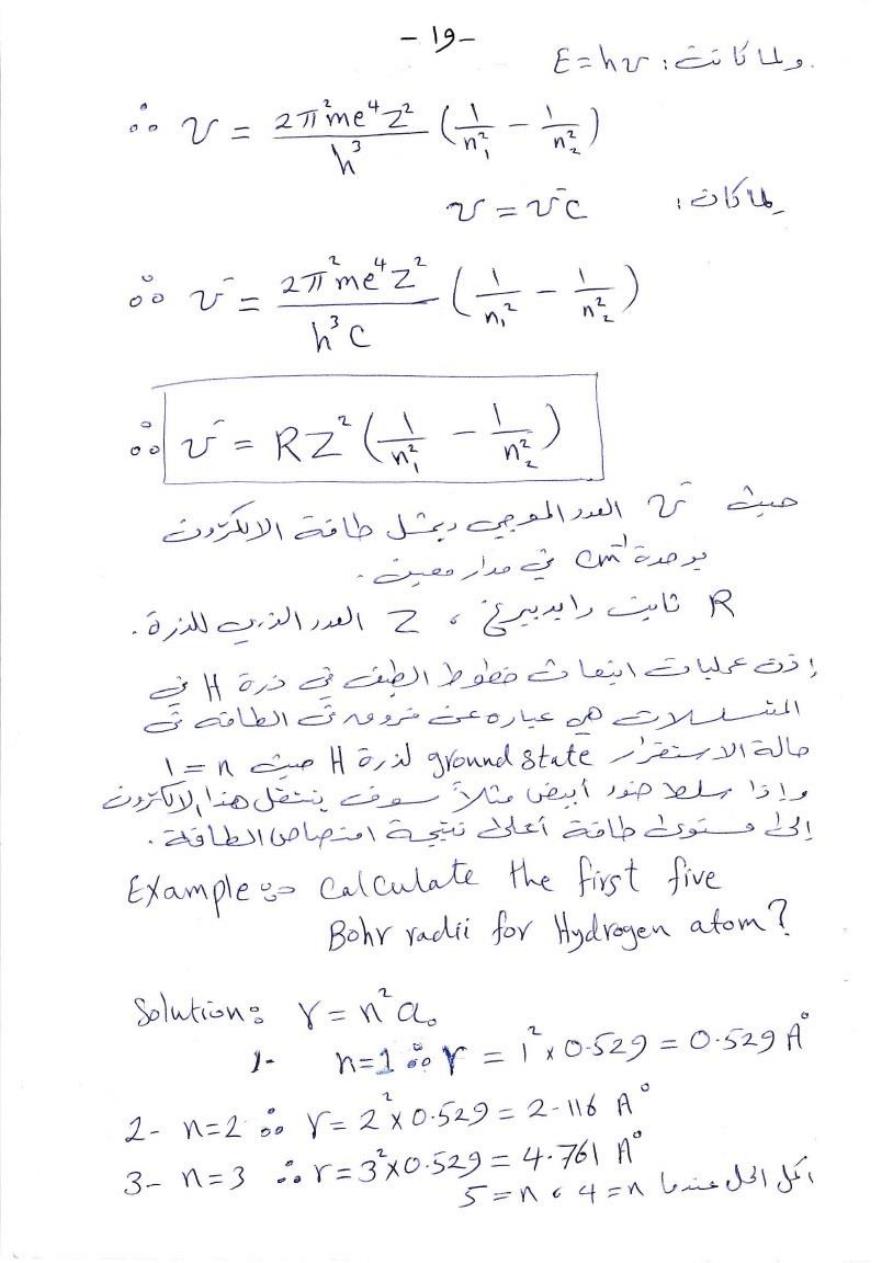 - 19 -
ولما كانت : E = hν
∴ ν = 2π²me⁴Z² / h³ (1/n₁² - 1/n₂²)
ولما كانت : ν = ν̄c
∴ ν̄ = 2π²me⁴Z² / h³c (1/n₁² - 1/n₂²)
∴ ν̄ = RZ² (1/n₁² - 1/n₂²)
حيث ν̄ العدد الموجي ويمثل طاقة الالكترون
بوحدة cm⁻¹ في مدار معين .
R ثابت رايدبيرغ ، Z العدد الذري للذرة .
إذن عمليات انبعاث خطوط الطيف في ذرة H في
المتسلسلات هي عباره عن فروق في الطاقه في
حالة الاستقرار ground state لذرة H حيث n = 1
وإذا سلط ضوء أبيض مثلاً سوف ينتقل هذا الالكترون
إلى مستوى طاقة أعلى نتيجة امتصاص الطاقة .
Example :- Calculate the first five
Bohr radii for Hydrogen atom?
Solution: r = n²a₀
1- n=1 ∴ r = 1² x 0.529 = 0.529 A°
2- n=2 ∴ r = 2² x 0.529 = 2.116 A°
3- n=3 ∴ r = 3² x 0.529 = 4.761 A°
اكمل الحل عندما n = 4 ، n = 5